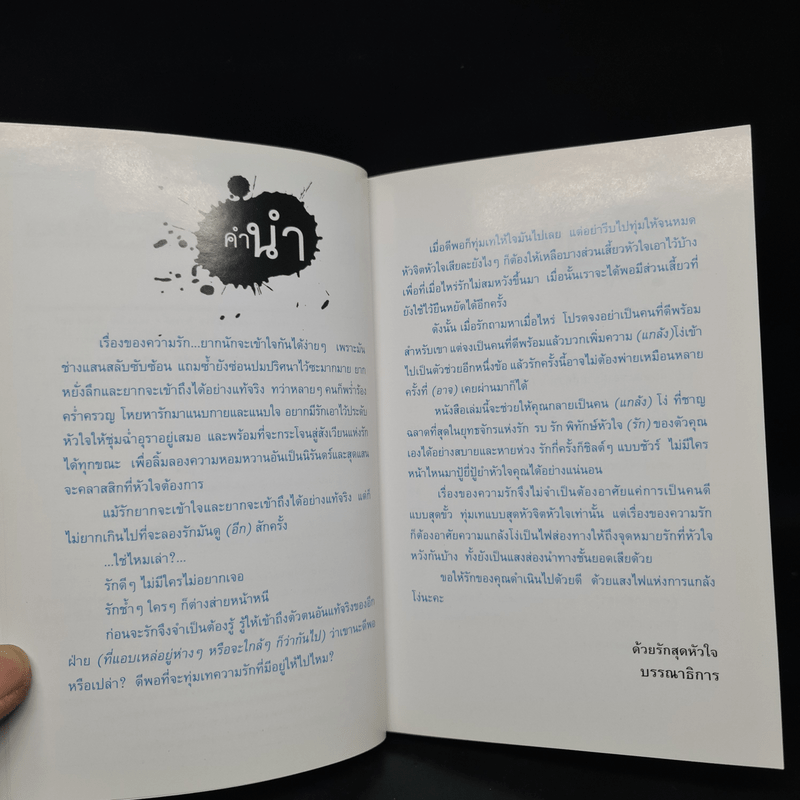 คำนำ
เรื่องของความรัก...ยากนักจะเข้าใจกันได้ง่ายๆ เพราะมัน
ช่างแสนสลับซับซ้อน แถมซ้ำยังซ่อนปมปริศนาไว้ซะมากมาย ยาก
หยั่งลึกและยากจะเข้าถึงได้อย่างแท้จริง ทว่าหลายๆ คนก็พร่ำร้อง
คร่ำครวญ โหยหารักมาแนบกายและแนบใจ อยากมีรักเอาไว้ประดับ
หัวใจให้ชุ่มฉ่ำอุราอยู่เสมอ และพร้อมที่จะกระโจนสู่สังเวียนแห่งรัก
ได้ทุกขณะ เพื่อลิ้มลองความหอมหวานอันเป็นนิรันดร์และสุดแสน
จะคลาสสิกที่หัวใจต้องการ
แม้รักยากจะเข้าใจและยากจะเข้าถึงได้อย่างแท้จริง แต่ก็
ไม่ยากเกินไปที่จะลองรักมันดู (อีก) สักครั้ง
...ใช่ไหมเล่า?...
รักดีๆ ไม่มีใครไม่อยากเจอ
รักช้ำๆ ใครๆ ก็ต่างส่ายหน้าหนี
ก่อนจะรักจึงจำเป็นต้องรู้ รู้ให้เข้าถึงตัวตนอันแท้จริงของอีก
ฝ่าย (ที่แอบเหล่อยู่ห่างๆ หรือจะใกล้ๆ ก็ว่ากันไป) ว่าเขาน่ะดีพอ
หรือเปล่า? ดีพอที่จะทุ่มเทความรักที่มีอยู่ให้ไปไหม?
เมื่อดีพอก็ทุ่มเทให้ใจมันไปเลย แต่อย่ารีบไปทุ่มให้จนหมด
หัวจิตหัวใจเสียละยังไงๆ ก็ต้องให้เหลือบางส่วนเสี้ยวหัวใจเอาไว้บ้าง
เพื่อที่เมื่อไหร่รักไม่สมหวังขึ้นมา เมื่อนั้นเราจะได้พอมีส่วนเสี้ยวที่
ยังใช้ไว้ยืนหยัดได้อีกครั้ง
ดังนั้น เมื่อรักถามหาเมื่อไหร่ โปรดจงอย่าเป็นคนที่ดีพร้อม
สำหรับเขา แต่จงเป็นคนที่ดีพร้อมแล้วบวกเพิ่มความ (แกล้ง) โง่เข้า
ไปเป็นตัวช่วยอีกหนึ่งข้อ แล้วรักครั้งนี้อาจไม่ต้องพ่ายเหมือนหลาย
ครั้งที่ (อาจ) เคยผ่านมาก็ได้
หนังสือเล่มนี้จะช่วยให้คุณกลายเป็นคน (แกล้ง) โง่ ที่ชาญ
ฉลาดที่สุดในยุทธจักรแห่งรัก รบ รัก พิทักษ์หัวใจ (รัก) ของตัวคุณ
เองได้อย่างสบายและหายห่วง รักกี่ครั้งก็ชิลด์ๆ แบบชัวร์ ไม่มีใคร
หน้าไหนมาปู้ยี่ปู้ยำหัวใจคุณได้อย่างแน่นอน
เรื่องของความรักจึงไม่จำเป็นต้องอาศัยแค่การเป็นคนดี
แบบสุดขั้ว ทุ่มเทแบบสุดหัวจิตหัวใจเท่านั้น แต่เรื่องของความรัก
ก็ต้องอาศัยความแกล้งโง่เป็นไฟส่องทางให้ถึงจุดหมายรักที่หัวใจ
หวังกันบ้าง ทั้งยังเป็นแสงส่องนำทางชั้นยอดเสียด้วย
ขอให้รักของคุณดำเนินไปด้วยดี ด้วยแสงไฟแห่งการแกล้ง
โง่นะคะ
ด้วยรักสุดหัวใจ
บรรณาธิการ